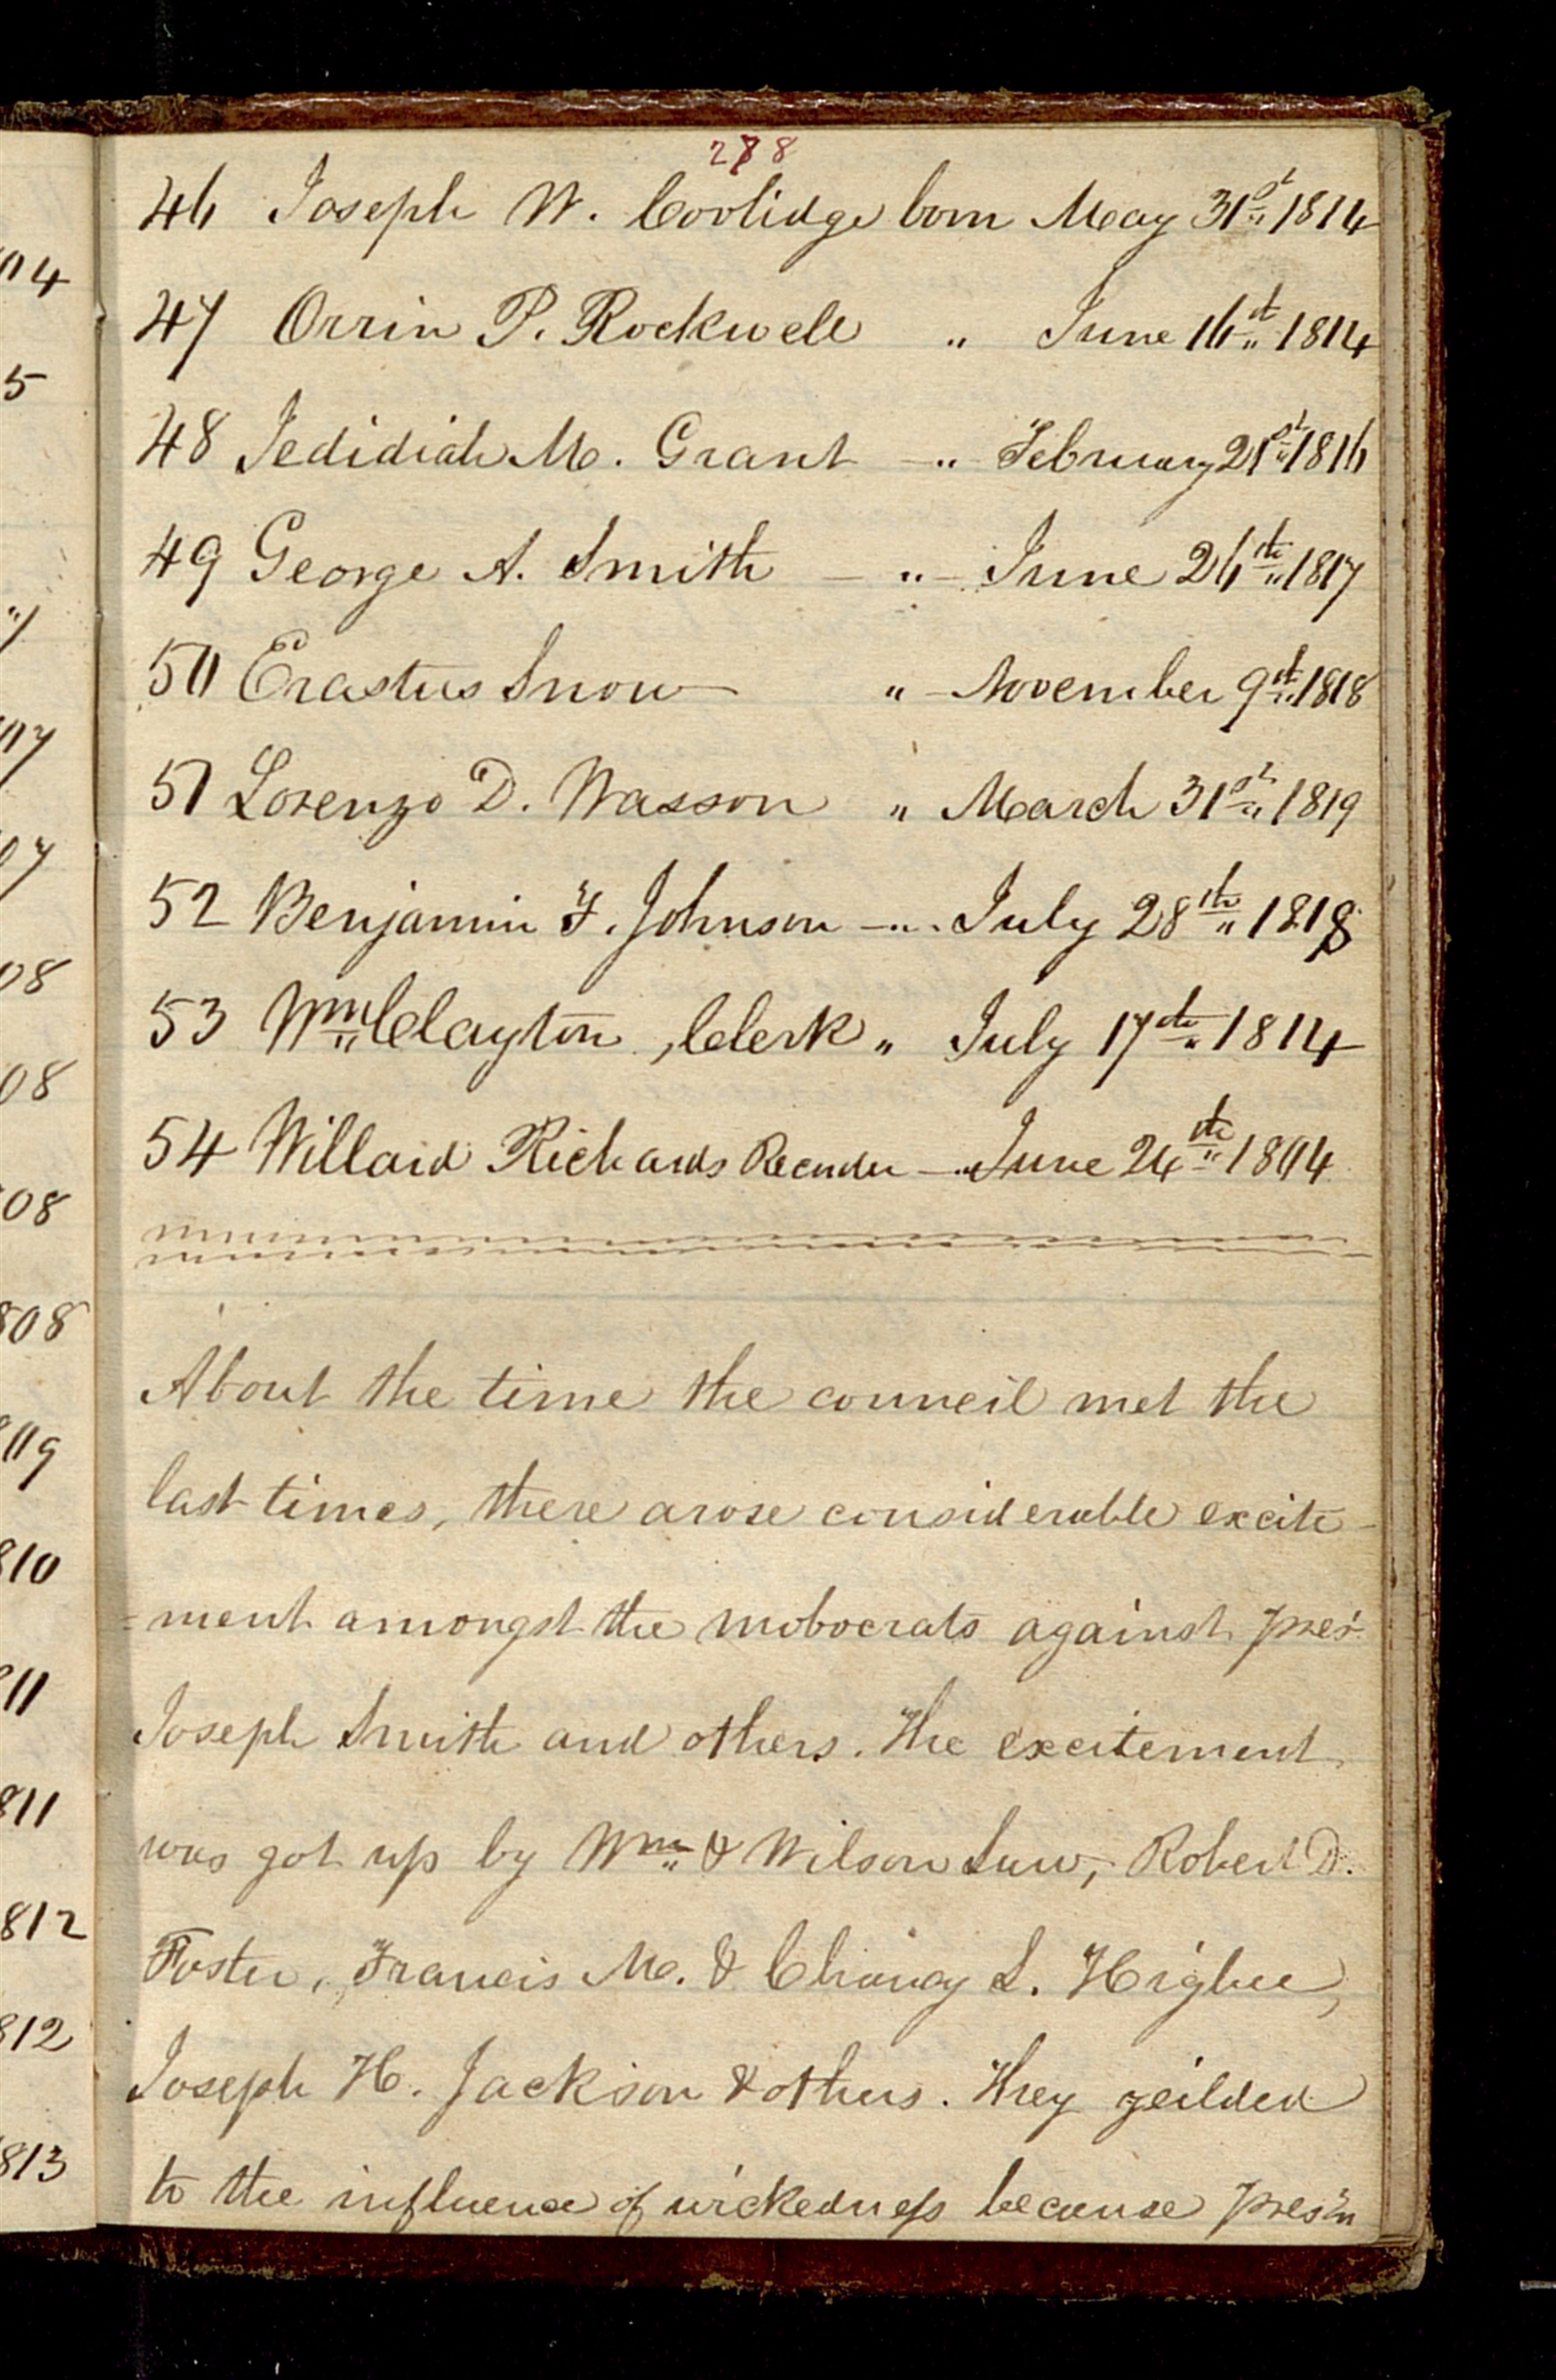 278
46 Joseph W. Coolidge born May 31st 1814
47 Orrin P. Rockwell " June 16th 1814
48 Jedidiah M. Grant — " — February 21st 1816
49 George A. Smith — " — June 26th 1817
50 Erastus Snow — " — November 9th 1818
51 Lorenzo D. Wasson " March 31st 1819
52 Benjamin F. Johnson — " . July 28th 1818
53 Wm Clayton, Clerk " July 17th 1814
54 Willard Richards Recorder — " June 24th 1804
About the time the council met the
last times, there arose considerable excite-
=ment amongst the mobocrats against pres.
Joseph Smith and others. The excitement
was got up by Wm & Wilson Law, Robert D.
Foster, Francis M. & Chancy L. Higbee,
Joseph H. Jackson & others. They yeilded
to the influence of wickedness because pres.
04
5
"/
07
07
08
08
08
808
09
810
811
811
812
812
813